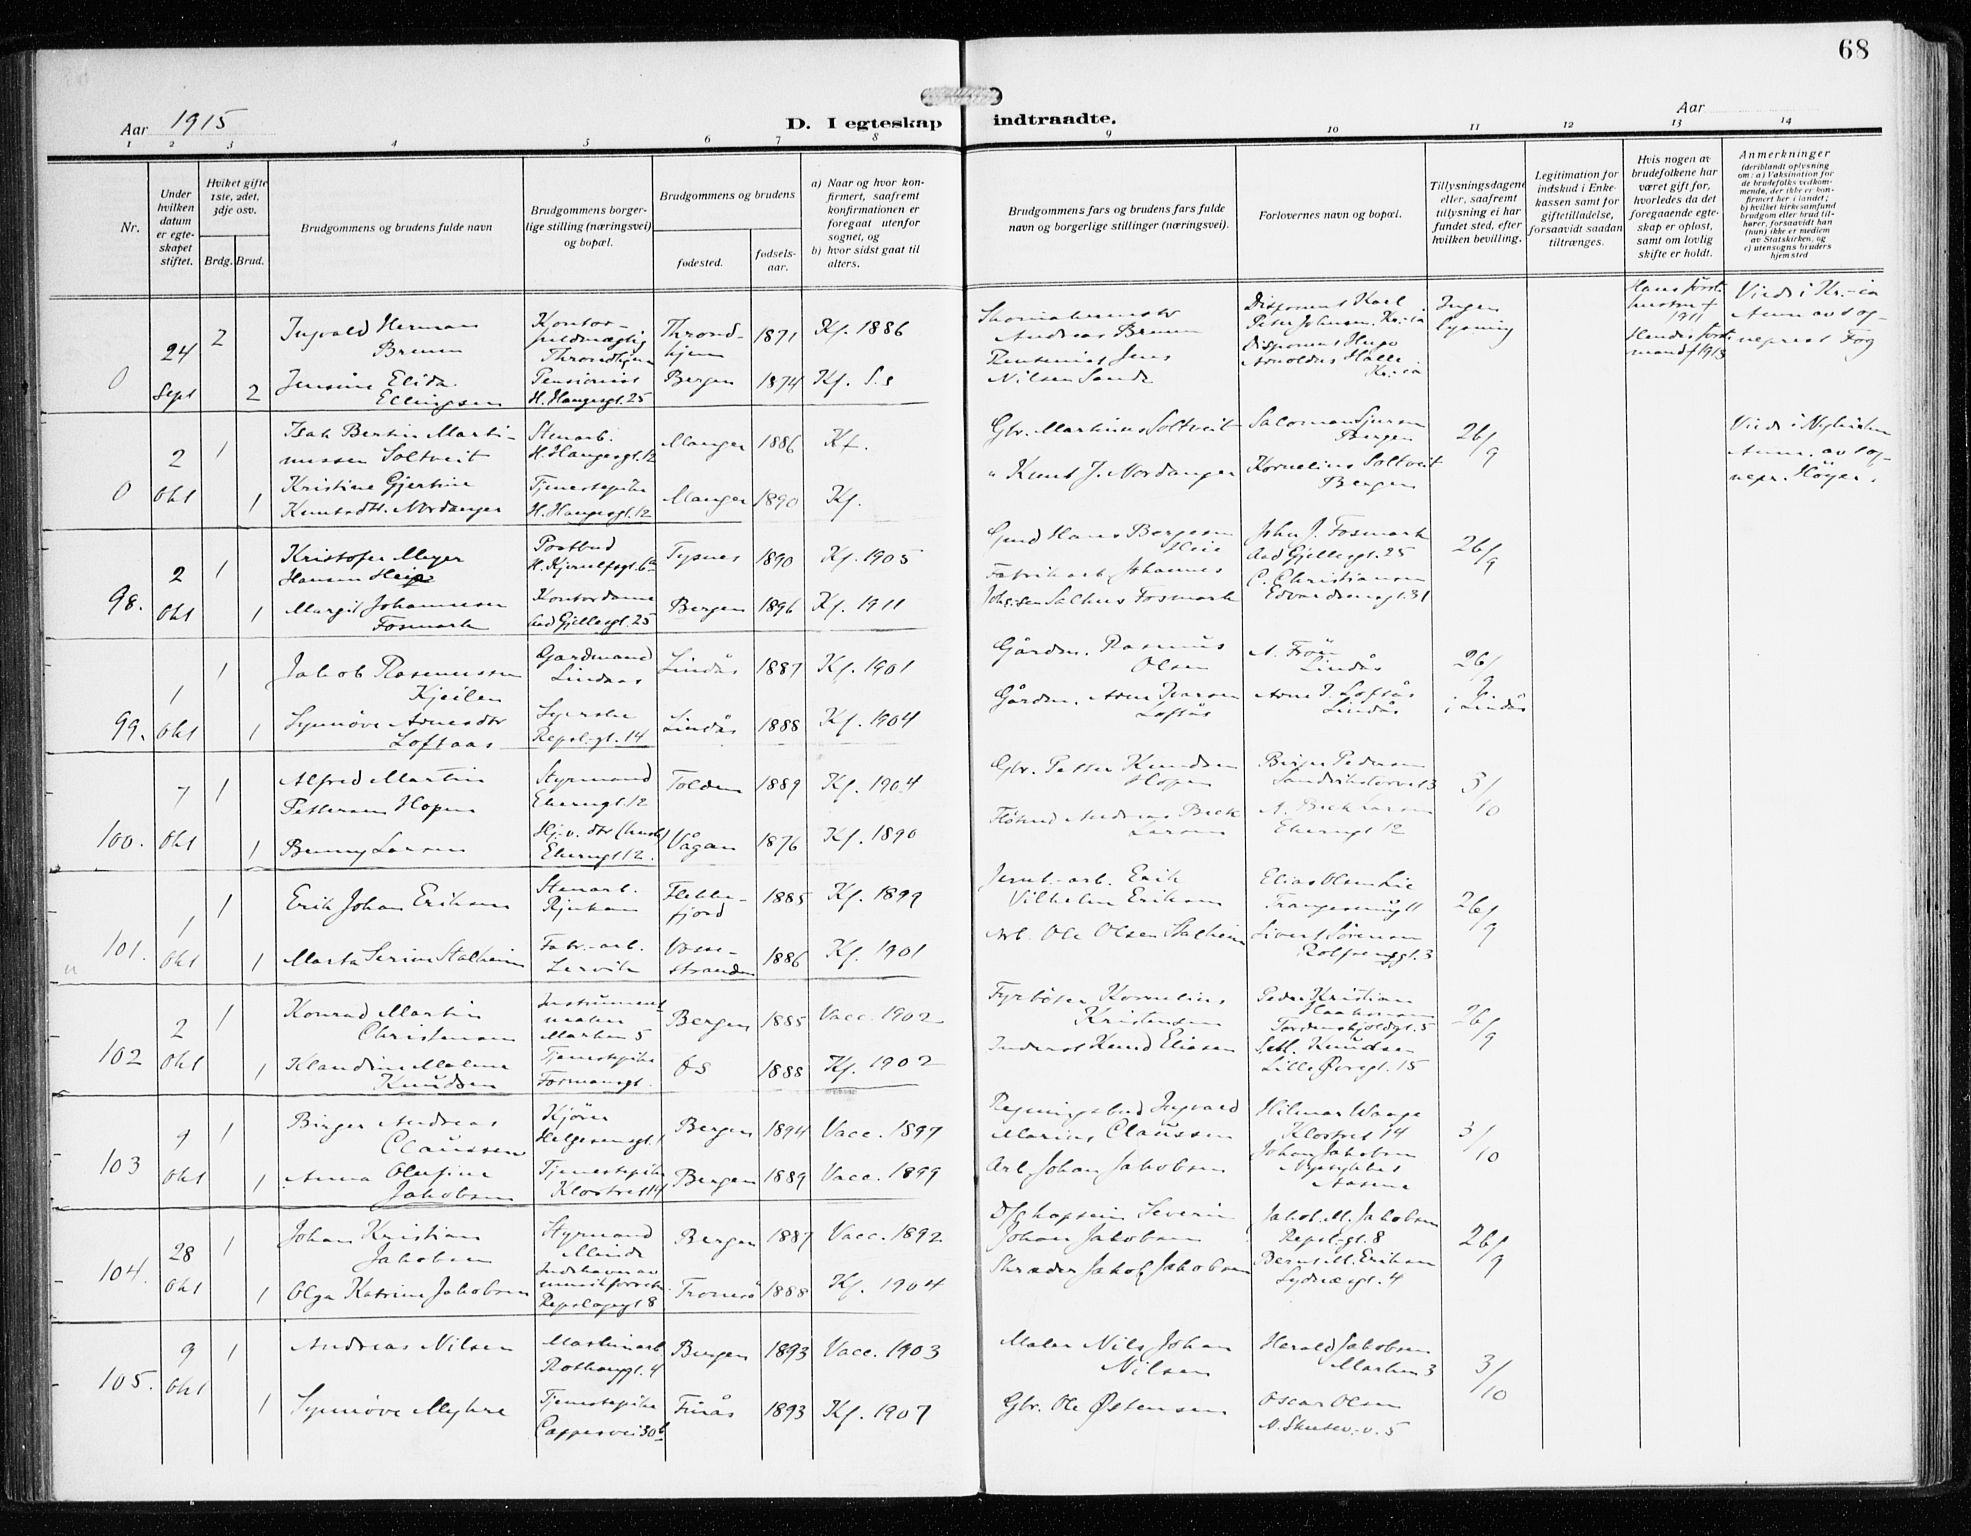 68
Aar 1915
D. I egteskap indtraadte.
Aar
1 2 3 4 5 6 7 8 9 10 11 12 13 14
Nr.
Under hvilken datum er egte-skapet stiftet.
Hviket gifte 1ste, 2det, 3dje osv.
Brdg. Brud.
Brudgommens og brudens fulde navn
Brudgommens borger-lige stilling (næringsvei) og bopæl.
Brudgommens og brudens
fødested.
fødsels-aar.
a) Naar og hvor kon-firmert, saafremt konfirmationen er foregaat utenfor sognet, og
b) hvor sidst gaat til alters.
Brudgommens fars og brudens fars fulde navn og borgerlige stillinger (næringsvei).
Forlovernes navn og bopæl.
Tillysningsdagene eller, saafremt tillysning ei har fundet sted, efter hvilken bevilling.
Legitimation for indskud i Enke-kassen samt for giftetilladelse, forsaavidt saadan tiltrænges.
Hvis nogen av brudefolkene har været gift før, hvorledes da det foregaaende egte-skap er opløst, samt om lovlig skifte er holdt.
Anmerkninger
(deriblandt oplysning om: a) Vaksination for de brudefolks vedkom-mende, der ikke er kon-firmert her i landet; b) hvilket kirkesamfund brudgom eller brud til-hører, forsaavidt han (hun) ikke er medlem av Statskirken, og c) utensogns bruders hjemsted
0
24
Sept
2
Ingvald Herman
Bremen
Kontor-
fuldmægtig
Throndhjem
Thrond-
hjem
1871
Kf. 1886
Andreas
Disponent Karl
Peter Johnsen. Kr.ia
Ingen
lysning
1911
Viede i Kr.-ia
Anm. av sog-
neprest Fog
2
Jensine Elida
Ellingsen
Pensionist
H. Haugesgt. 25
Bergen
1874
Kf. S.s
Jens
Nilsen Sande
Disponent Hugo
Arnoldus Halle
Kr.ia
1913
0
2
Okt
1
Isak Bertin Marti-
nussen Soltveit
Stenarb.
H. Haugesgt. 12
Manger
1886
Kf.
Gbr. Martinus Soltveit
Salomon Sjursen
Bergen
26/9
Anm. av sog-
nepr. Höyer.
1
Kristine Gjertine
Knutsdtr. Nordanger
Tjenestepike
H. Haugesgt. 12
Manger
1890
Kf.
" Knut J. Nordanger
Kornelius Soltveit
Bergen
98.
2
Okt
1
Kristofer Meyer
Hansen Heie
Postbud
Tysnes
1890
Kf. 1905
Gmd Hans Borgesen
Heie
John J. Fosmark
Aad Gjellesgt. 25
26/9
1
Margit Johannesen
Fosmark
Kontordame
Aad Gjellesgt. 25
Bergen
1896
Kf. 1911
Fabrikarb. Johannes
Salhus Fosmark
C. Christiansen
Edvardsensgt. 31
99.
1
Okt
1
Jakob Rasmussen
Kjeilen
Gardmand
Lindaas
Lindås
1887
Kf. 1901
Gårdm. Rasmus
Olsen
Lindås
26/9
i Lindås
1
Synnöve Arnesdtr
Loftaas
Syerske
Repsl.-gt. 14
Lindås
1888
Kf. 1904
Gårdm. Arne Iversen
Loftås
Arne I. Loftås
Lindås
100.
7
Okt
1
Alfred Martin
Pettersen Hopen
Styrmand
Folden
1889
Kf. 1904
Gbr. Petter Knudsen
Hopen
Birger Pedersen
3/10
1
Benny Larsen
Vågan
1876
Kf. 1890
Andreas Beck
Larsen
A. Beck Larsen
101.
1
Okt
1
Erik Johan Eriksen
Stenarb.
Rjukan
Flekke-
fjord
1885
Kf. 1899
Jernb.-arb. Erik
Vilhelm Eriksen
Elias Olsen Lie
26/9
1
Marta Serine Stalheim
Fabr.-arb.
Lervik
Vosse-
stranden
1886
Kf. 1901
Arb. Ole Olsen Stalheim
Sivert Sörensen
Rolfsensgt. 3
102
2
Okt
1
Konrad Martin
Christensen
Instrument
maker
Marken 5
Bergen
1885
Vacc. 1902
Fyrböter Kornelius
Kristensen
Peder Kristian
Haakonsen
Tordenskjoldgt. 5
26/9
1
Klaudine Malene
Knudsen
Tjenestepike
Fosmansgt.
Os
1888
Kf. 1902
Inderst Knud Eliasen
Knudsen
Lille Øvregt. 15
103
9
Okt
1
Birger Andreas
Claussen
Kjörer
Helgesensgt. 1
Bergen
1894
Vacc. 1897
Regningsbud Ingvald
Marius Claussen
Hilmar Waage
Klostret 14
3/10
1
Anna Olufine
Jakobsen
Tjenestepike
Klostret 14
Bergen
1889
Vacc. 1899
Arb Johan Jakobsen
Johan Jakobsen
104.
28
Okt
1
Johan Kristian
Jakobsen
Styrmand
Minde
Bergen
1887
Vacc. 1892
Dfskaptein Severin
Johan Jakobsen
Jakob M. Jakobsen
Repsl.gt. 8
26/9
1
Olga Katrine Jakobsen
Indehaver av
Repslagergt 8
Tromsö
1888
Kf. 1904
Skræder Jakob Jakobsen
Bernt M. Eriksen
Sydnæsgt. 4
105.
9
Okt
1
Andreas Nilsen
Maskinarb.
Rothaugt. 4
Bergen
1893
Vacc. 1903
Maler Nils Johan
Nilsen
Harald Jakobsen
Marken 3
3/10
1
Synnöve Myhre
Tjenestepike
Cappesvei 30b
Furås
1893
Kf. 1907
Gbr. Ole Østensen
Oscar Olsen